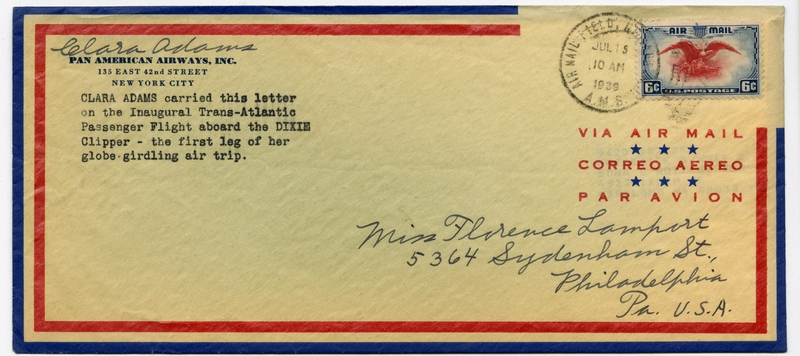 Clara Adams
PAN AMERICAN AIRWAYS, INC.
135 EAST 42nd STREET
NEW YORK CITY
CLARA ADAMS carried this letter
on the Inaugural Trans-Atlantic
Passenger Flight aboard the DIXIE
Clipper - the first leg of her
globe-girdling air trip.
AIR MAIL FIELD,
JUL 15
10 AM
1939
A.M.S.
AIR MAIL
6c 6c
U.S. POSTAGE
VIA AIR MAIL
CORREO AEREO
PAR AVION
Miss Florence Lamport
5364 Sydenham St.,
Philadelphia
Pa. U.S.A.